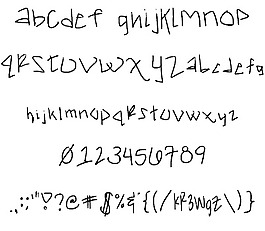 abcdef ghijklmnop
qrstuvwxyzabcdefg
hijklmnopqrstuvwxyz
0123456789
.,:;'"!?@#$%&{(/\)}